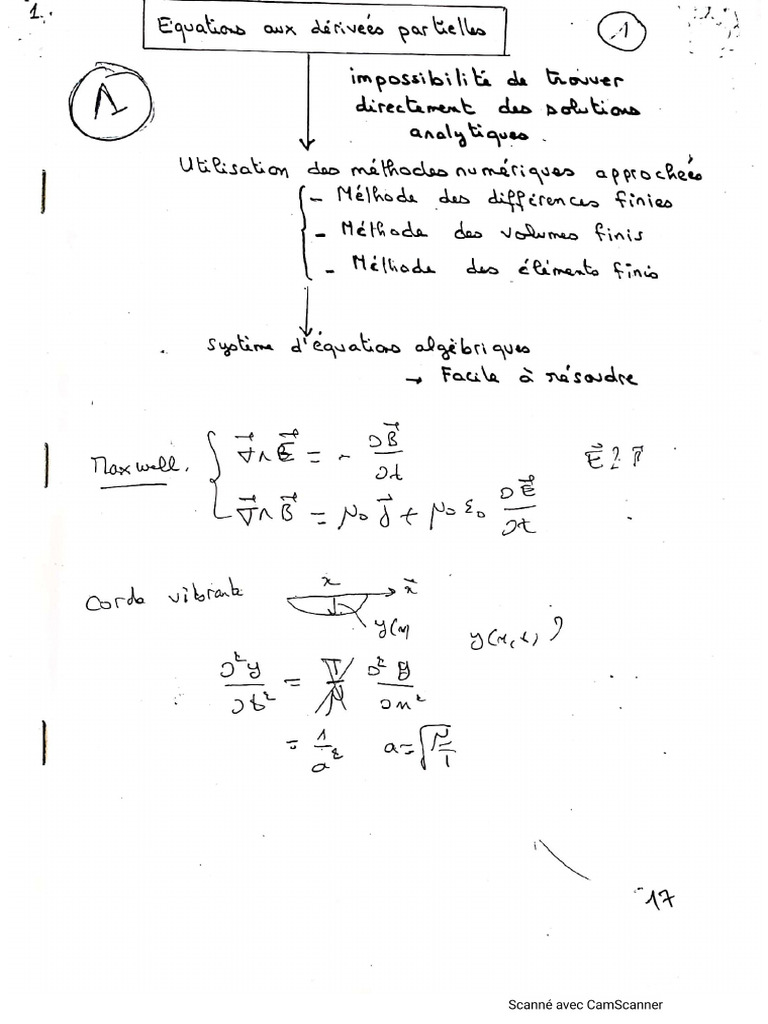 1.
Equations aux dérivées partielles
1
1
impossibilité de trouver
directement des solutions
analytiques.
Utilisation des méthodes numériques approchées
- Méthode des différences finies
- Méthode des volumes finis
- Méthode des éléments finis
système d'équations algébriques
→ Facile à résoudre
Maxwell.
∇⃗ ∧ E⃗ = - ∂B⃗/∂t
E⃗ ? ?
∇⃗ ∧ B⃗ = μ₀ j⃗ + μ₀ ε₀ ∂E⃗/∂t
Corde vibrante
x
x⃗
y(x
y(x,t) ?
∂²y/∂t² = T/μ ∂²y/∂x²
= 1/a² a = √(μ/T)
17
Scanné avec CamScanner